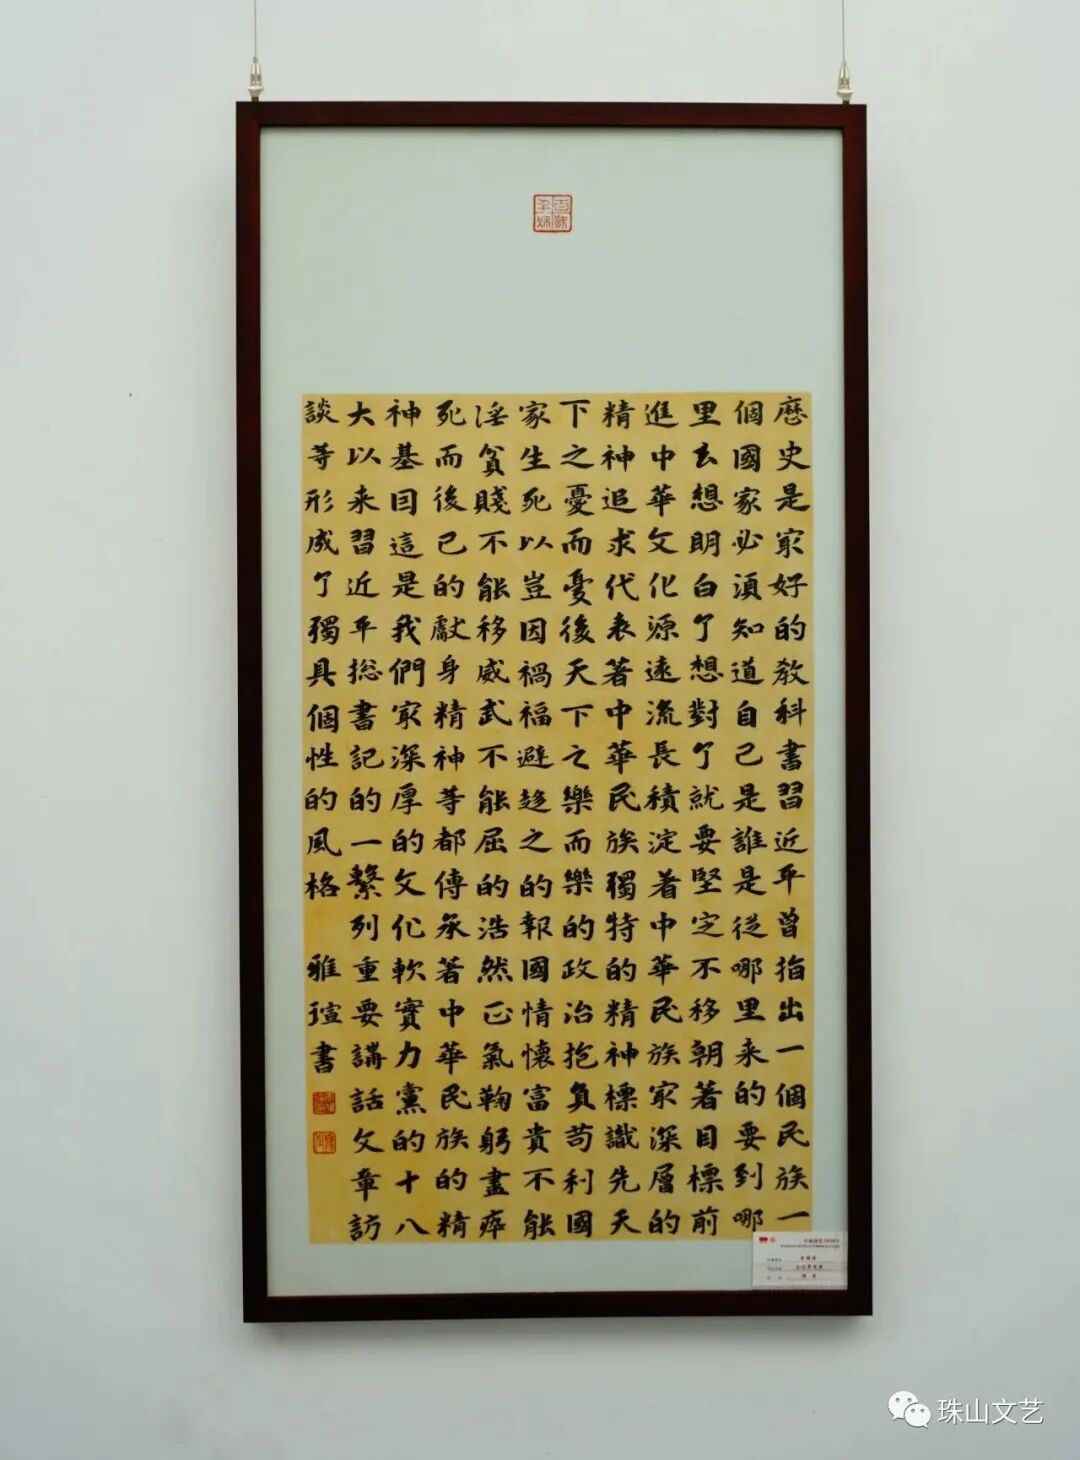 厯史是冣好的教科書習近平曾指出一個民族一
個國家必須知道自己是誰是從哪里来的要到哪
里去想明白了想對了就要堅定不移朝著目標前
進中華文化源遠流長積淀着中華民族冣深層的
精神追求代表著中華民族獨特的精神標識先天
下之憂而憂後天下之樂而樂的政治抱負苟利國
家生死以豈因禍福避趨之的報國情懷富貴不能
淫貧賤不能移威武不能屈的浩然正氣鞠躬盡瘁
死而後已的獻身精神等都傳承著中華民族的精
神基因這是我們冣深厚的文化軟實力黨的十八
大以来習近平総書記的一繫列重要講話文章訪
談等形成了獨具個性的風格 雅瑄書
珠山文艺